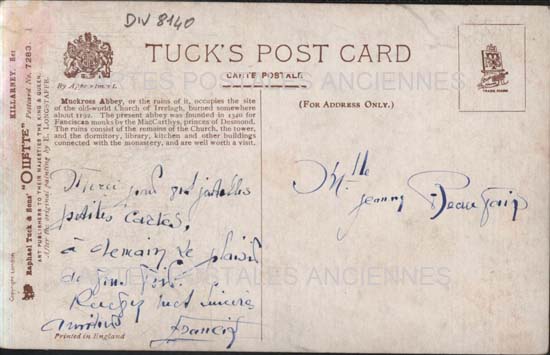 DIV 8140
TUCK'S POST CARD
CARTE POSTALE
By Appointment.
(FOR ADDRESS ONLY.)
TRADE MARK
Muckross Abbey, or the ruins of it, occupies the site
of the old-world Church of Irrelagh, burned somewhere
about 1192. The present abbey was founded in 1340 for
Franciscan monks by the MacCarthys, princes of Desmond.
The ruins consist of the remains of the Church, the tower,
and the dormitory, library, kitchen and other buildings
connected with the monastery, and are well worth a visit.
KILLARNEY.
Raphael Tuck & Sons' "OILETTE" Postcard No. 7283.
ART PUBLISHERS TO THEIR MAJESTIES THE KING & QUEEN.
After the original painting by E. LONGSTAFFE.
Copyright London.
Merci pour
petites cartes,
à demain le plaisir
de
Francis
Printed in England
Mlle
Jenny Beaufair
CARTES POSTALES ANCIENNES
CARTES POSTALES ANCIENNES